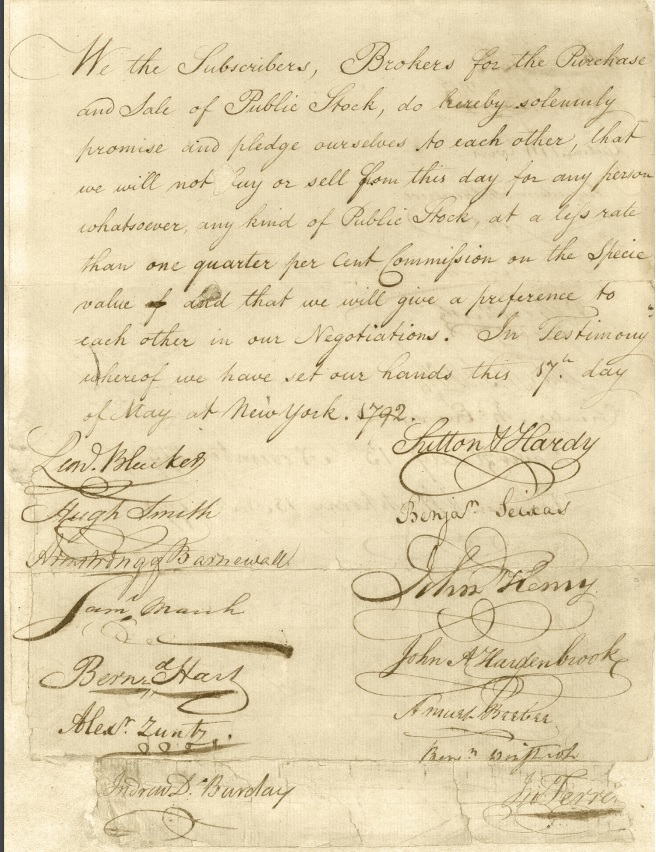 We the Subscribers, Brokers for the Purchase
and Sale of Public Stock, do hereby solemnly
promise and pledge ourselves to each other, that
we will not buy or sell from this day for any person
whatsoever, any kind of Public Stock, at a less rate
than one quarter per Cent Commission on the Specie
value of and that we will give a preference to
each other in our Negotiations. In Testimony
whereof we have set our hands this 17th. day
of May at New York. 1792.
Leod. Bleecker
Hugh Smith
Armstrong & Barnewall
Saml. March
Bernrd Hart
Alexr. Zuntz.
Andrew D. Barclay
Sutton & Hardy
Benjan. Seixas
John Henry
John A Hardenbrook
Amurt Beebee
Benjn Winthrop
Jno Ferrers